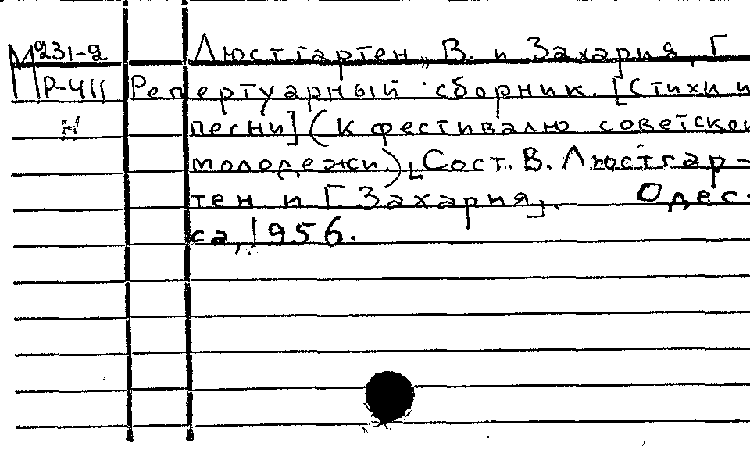 М231-2 Люстгартен, В. и Захария, Г
Р-411 Репертуарный сборник. [Стихи и
песни] (К фестивалю советской
молодежи) [Сост. В. Люстгар-
тен и Г. Захария]. Одес-
са, 1956.